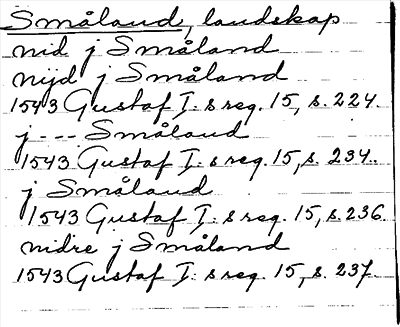 Småland, landskap
nid j Småland
nijd j Småland
1543 Gustaf I:s reg. 15, s. 224.
j --- Småland
1543 Gustaf I:s reg. 15, s. 234.
j Småland
1543 Gustaf I:s reg. 15, s. 236.
nidre j Småland
1543 Gustaf I:s reg. 15, s. 237.